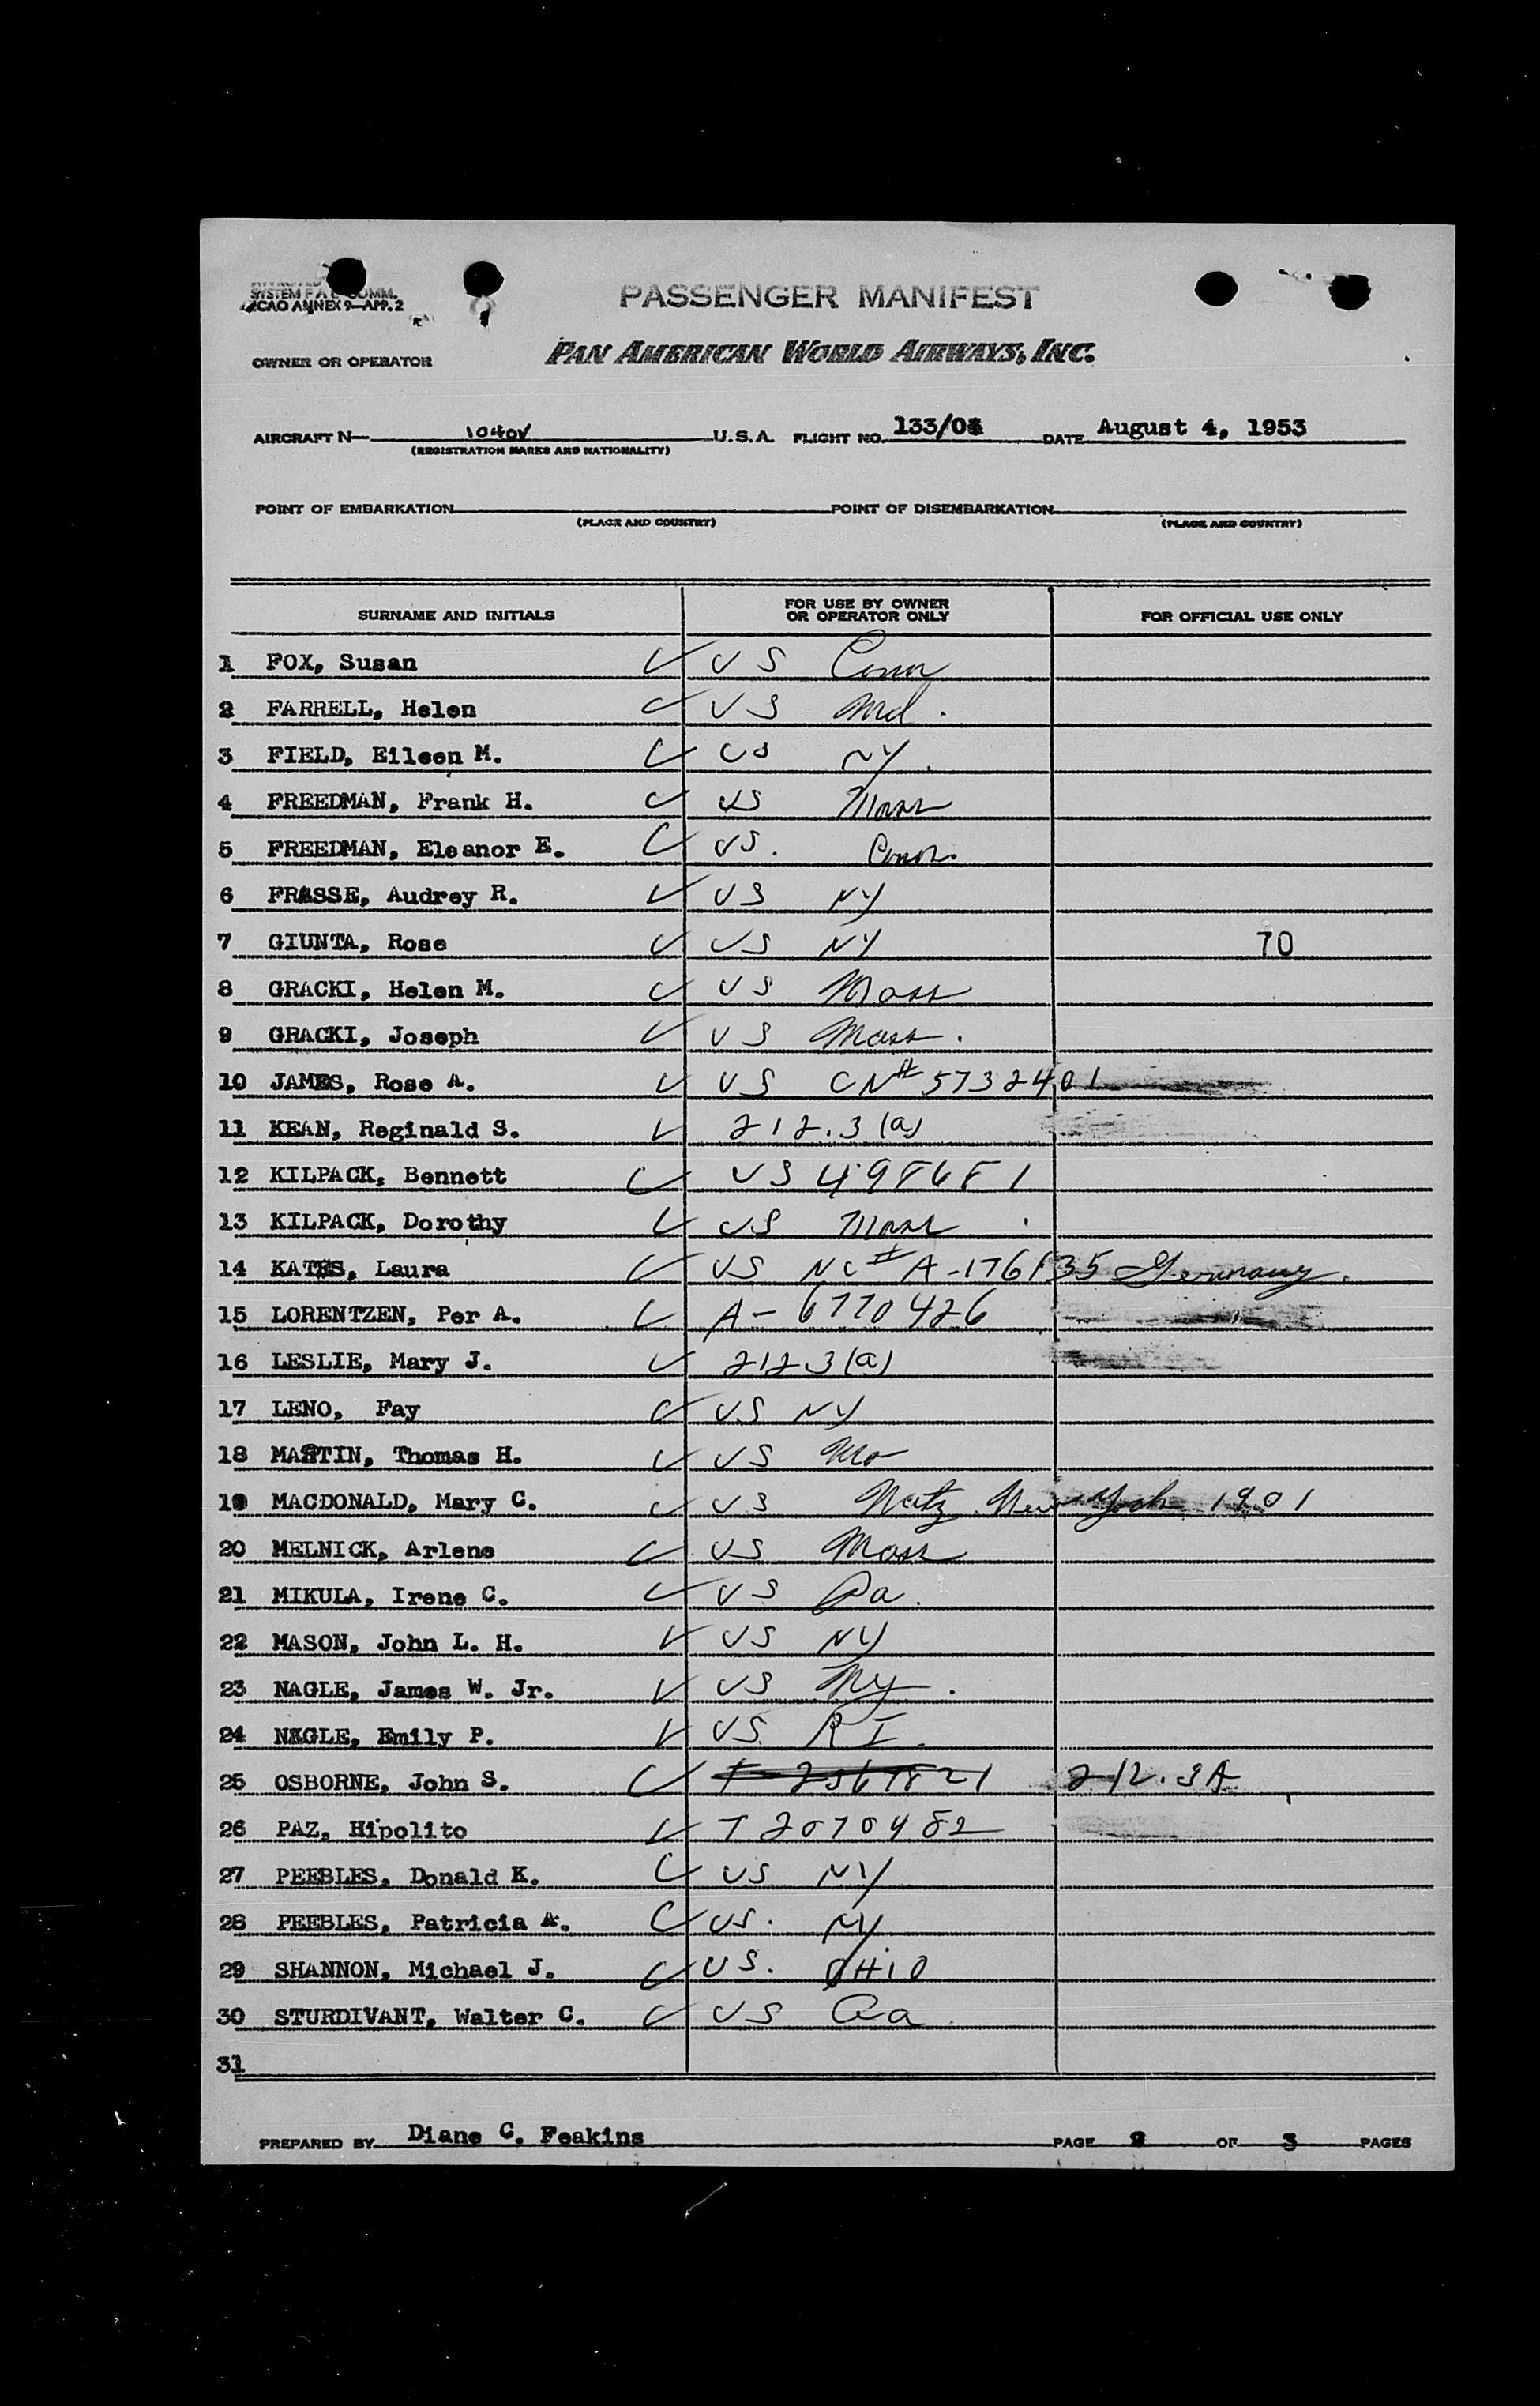 SYSTEM F A L COMM.
ICAO ANNEX 9—APP. 2
PASSENGER MANIFEST
OWNER OR OPERATOR PAN AMERICAN WORLD AIRWAYS, INC.
AIRCRAFT N— 1040V U.S.A. FLIGHT NO. 133/03 DATE August 4, 1953
(REGISTRATION MARKS AND NATIONALITY)
POINT OF EMBARKATION POINT OF DISEMBARKATION
(PLACE AND COUNTRY) (PLACE AND COUNTRY)
SURNAME AND INITIALS FOR USE BY OWNER OR OPERATOR ONLY FOR OFFICIAL USE ONLY
1 FOX, Susan ✓ US Conn
2 FARRELL, Helen ✓ US Md.
3 FIELD, Eileen M. ✓ US NY.
4 FREEDMAN, Frank H. ✓ US Mass
5 FREEDMAN, Eleanor E. ✓ US. Conn.
6 FRASSE, Audrey R. ✓ US NY
7 GIUNTA, Rose ✓ US NY 70
8 GRACKI, Helen M. ✓ US Mass
9 GRACKI, Joseph ✓ US Mass.
10 JAMES, Rose A. ✓ US CN# 5732401
11 KEAN, Reginald S. ✓ 212.3(a)
12 KILPACK, Bennett ✓ US 498681
13 KILPACK, Dorothy ✓ US Mass
14 KATES, Laura ✓ US NC# A-176135 Germany.
15 LORENTZEN, Per A. ✓ A-6770426
16 LESLIE, Mary J. ✓ 212.3(a)
17 LENO, Fay ✓ US NY
18 MASTIN, Thomas H. ✓ US Mo
19 MACDONALD, Mary C. ✓ US Natz New York 1901
20 MELNICK, Arlene ✓ US Mass
21 MIKULA, Irene C. ✓ US Pa.
22 MASON, John L. H. ✓ US NY
23 NAGLE, James W. Jr. ✓ US Ny.
24 NAGLE, Emily P. ✓ US RI.
25 OSBORNE, John S. ✓ 212.3A
26 PAZ, Hipolito ✓ T 2070482
27 PEEBLES, Donald K. ✓ US NY
28 PEEBLES, Patricia A. ✓ US. NY
29 SHANNON, Michael J. ✓ US. OHIO
30 STURDIVANT, Walter C. ✓ US
31
PREPARED BY Diane C. Feakins PAGE 2 OF 3 PAGES